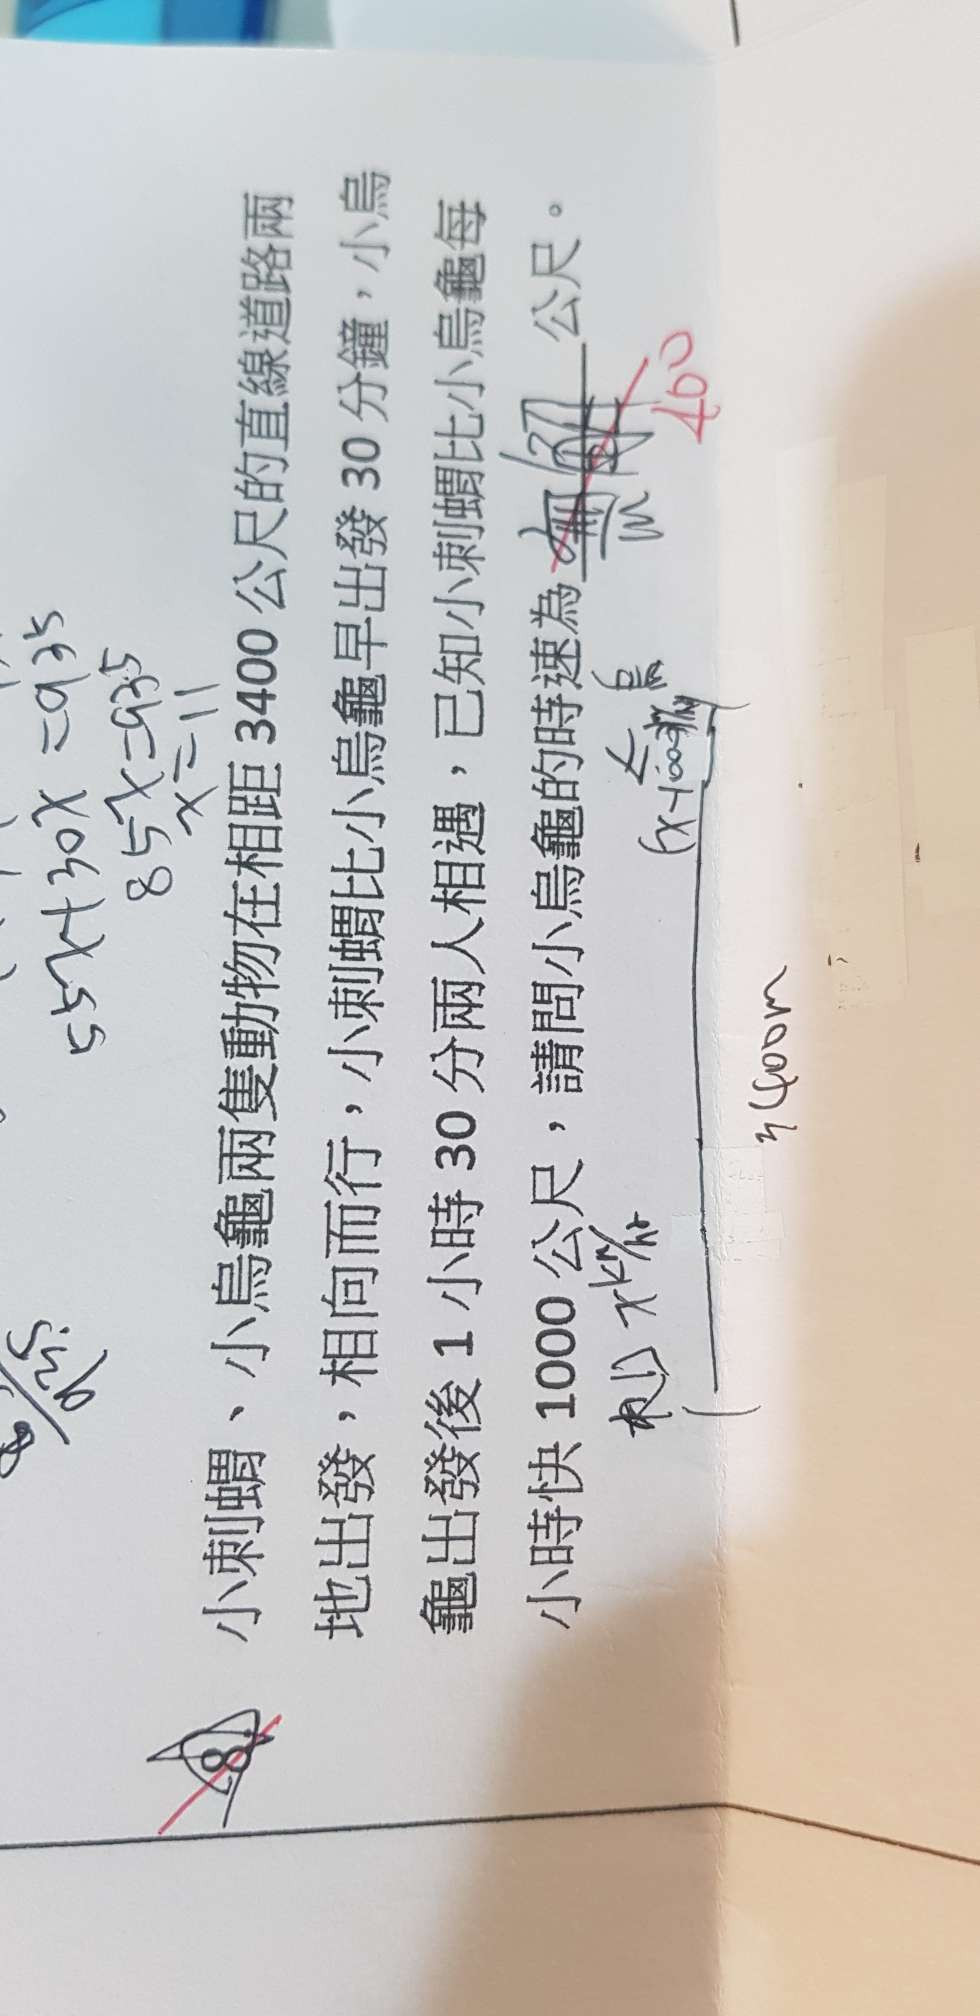 55x+30x=935
85x=935
x=11
8.
小刺蝟、小烏龜兩隻動物在相距 3400 公尺的直線道路兩
地出發，相向而行，小刺蝟比小烏龜早出發 30 分鐘，小烏
龜出發後 1 小時 30 分兩人相遇，已知小刺蝟比小烏龜每
小時快 1000 公尺，請問小烏龜的時速為 公尺。
400
刺 x km/hr
3400m